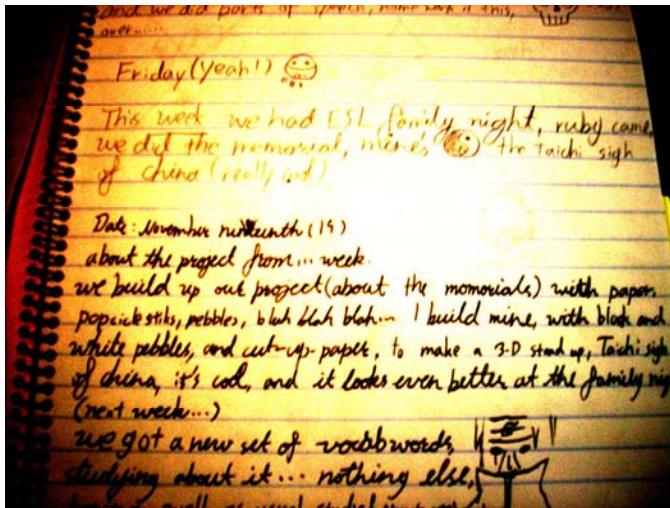 and we did parts of speech, home work is this,
over......
Friday (Yeah!)
This week we had ESL family night, ruby came,
we did the memorial, mine's the Taichi sigh
of china (really cool)
Date: November nineteenth (19)
about the project from... week.
we build up our project (about the momorials) with paper,
popcicle stiks, pebbles, bluh blah blah... I build mine, with black and
white pebbles, and cut-up-paper, to make a 3-D stand up, Taichi sigh
of china, it's cool, and it looks even better at the family nig
(next week...)
we got a new set of vocabb words,
studying about it... nothing else,
as usual